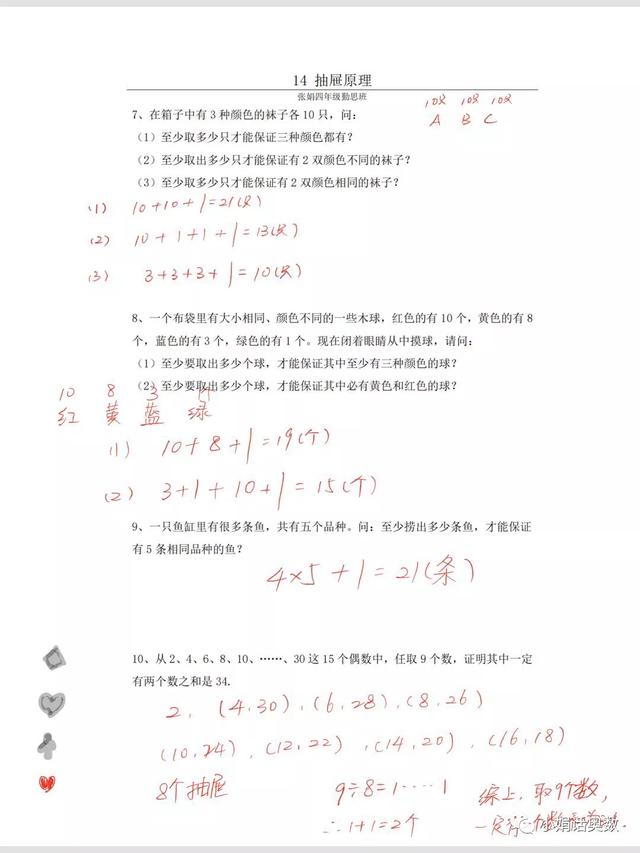 14 抽屉原理
张娟四年级勤思班
10只 10只 10只
A B C
7、在箱子中有 3 种颜色的袜子各 10 只，问：
（1）至少取多少只才能保证三种颜色都有？
（2）至少取出多少只才能保证有 2 双颜色不同的袜子？
（3）至少取多少只才能保证有 2 双颜色相同的袜子？
(1) 10+10+1=21(只)
(2) 10+1+1+1=13(只)
(3) 3+3+3+1=10(只)
8、一个布袋里有大小相同、颜色不同的一些木球，红色的有 10 个，黄色的有 8
个，蓝色的有 3 个，绿色的有 1 个。现在闭着眼睛从中摸球，请问：
（1）至少要取出多少个球，才能保证其中至少有三种颜色的球？
（2）至少要取出多少个球，才能保证其中必有黄色和红色的球？
10 8 3 1个
红 黄 蓝 绿
(1) 10+8+1=19(个)
(2) 3+1+10+1=15(个)
9、一只鱼缸里有很多条鱼，共有五个品种。问：至少捞出多少条鱼，才能保证
有 5 条相同品种的鱼？
4×5+1=21(条)
10、从 2、4、6、8、10、……、30 这 15 个偶数中，任取 9 个数，证明其中一定
有两个数之和是 34.
2、(4,30)、(6,28)、(8,26)
(10,24)、(12,22)、(14,20)、(16,18)
8个抽屉 9÷8=1····1 综上，取9个数，
∴1+1=2个 一定
小娟话奥数